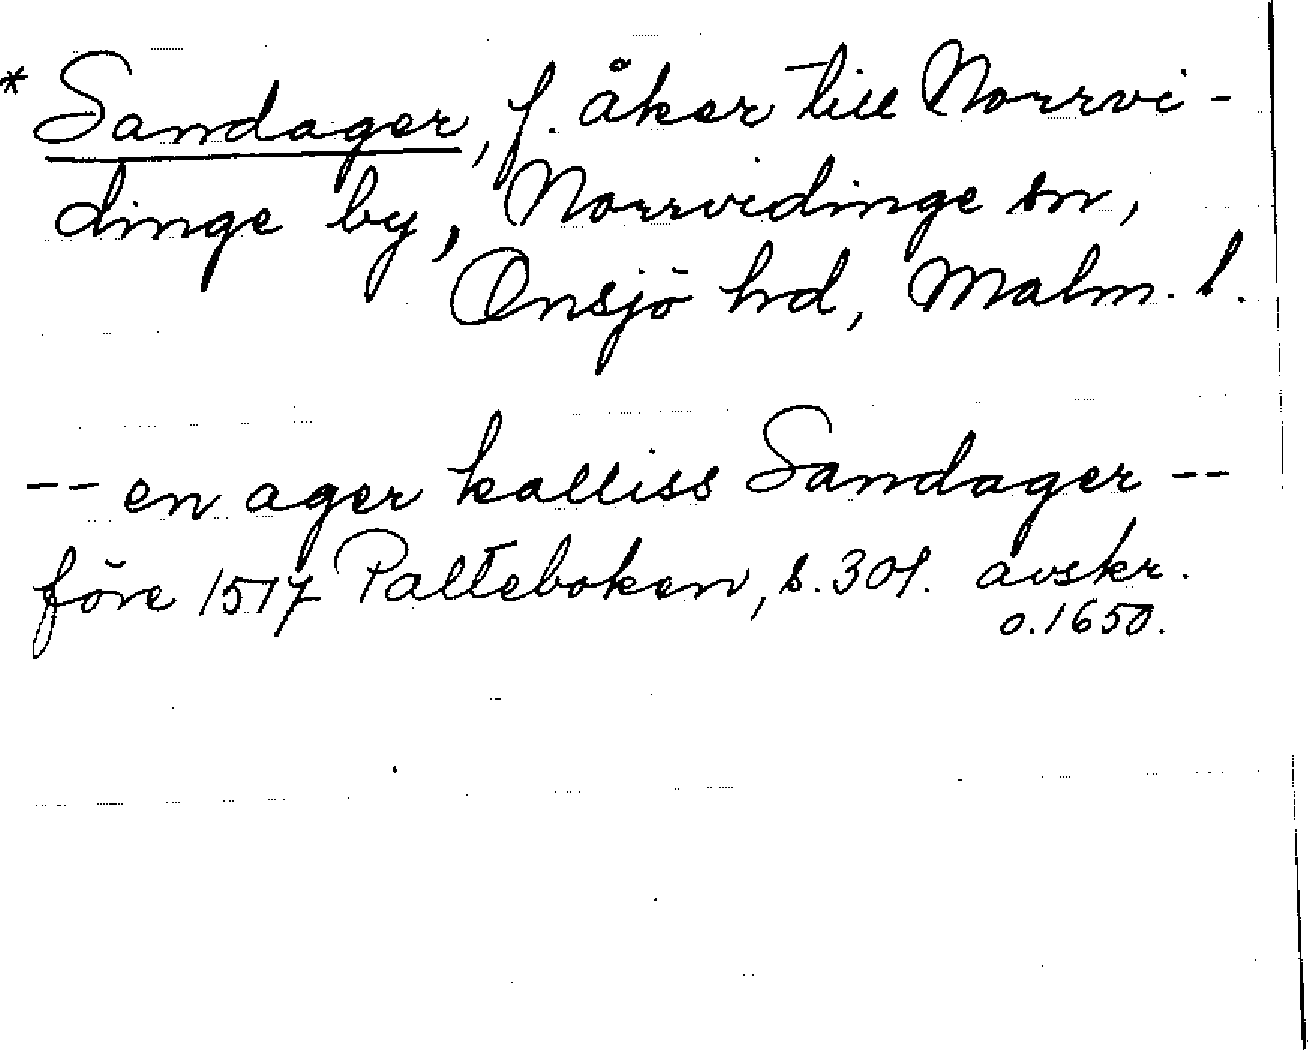 * Sandager, f. åker till Norrvi-
dinge by, Norrvidinge sn,
Onsjö hd, Malm. l.
-- en ager kalliss Sandager --
före 1517 Palteboken, s. 301. avskr.
o. 1650.